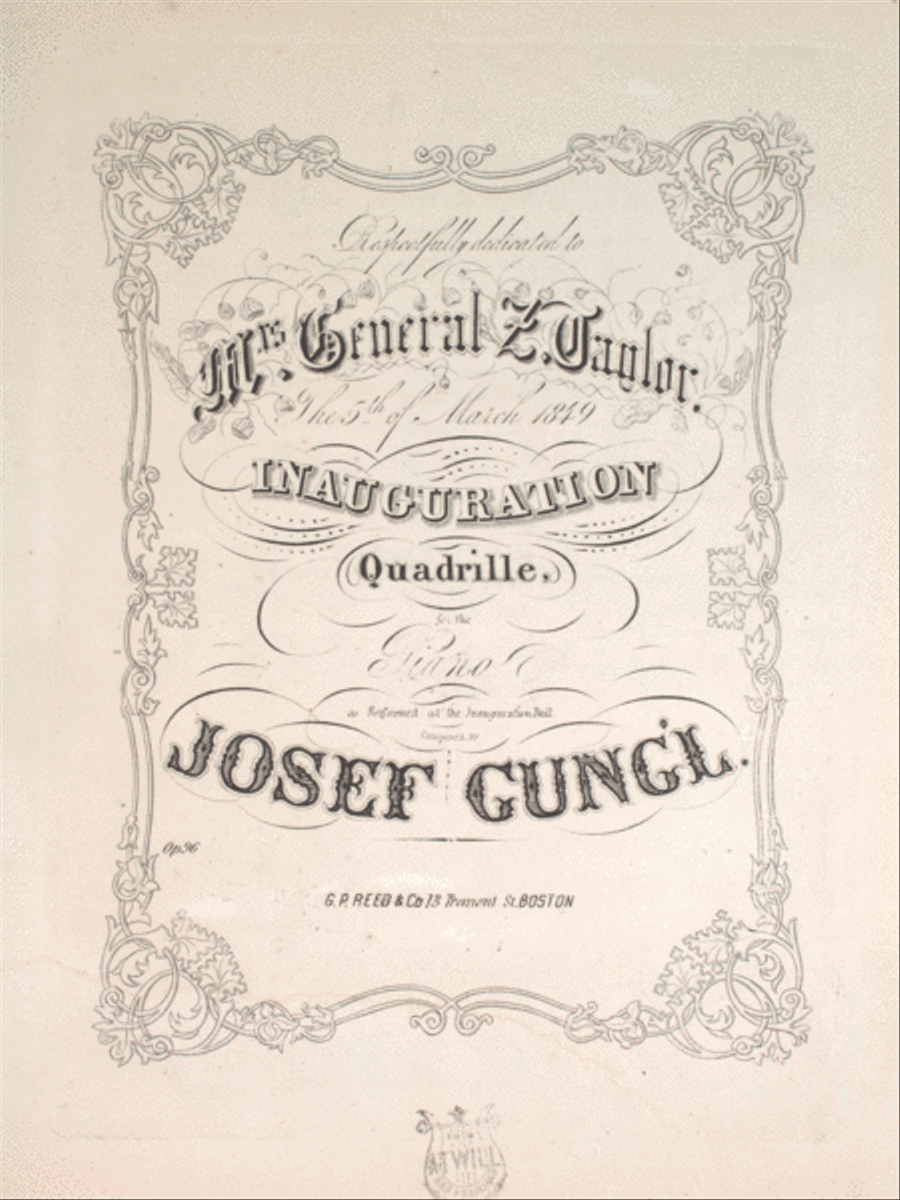 Respectfully dedicated to
Mrs. General Z. Taylor.
The 5th of March 1849
INAUGURATION
Quadrille,
for the
Piano
as Performed at the Inauguration Ball
Composed by
JOSEF GUNG'L.
Op 96
G. P. REED & Co 13 Tremont St. BOSTON
ATWILL